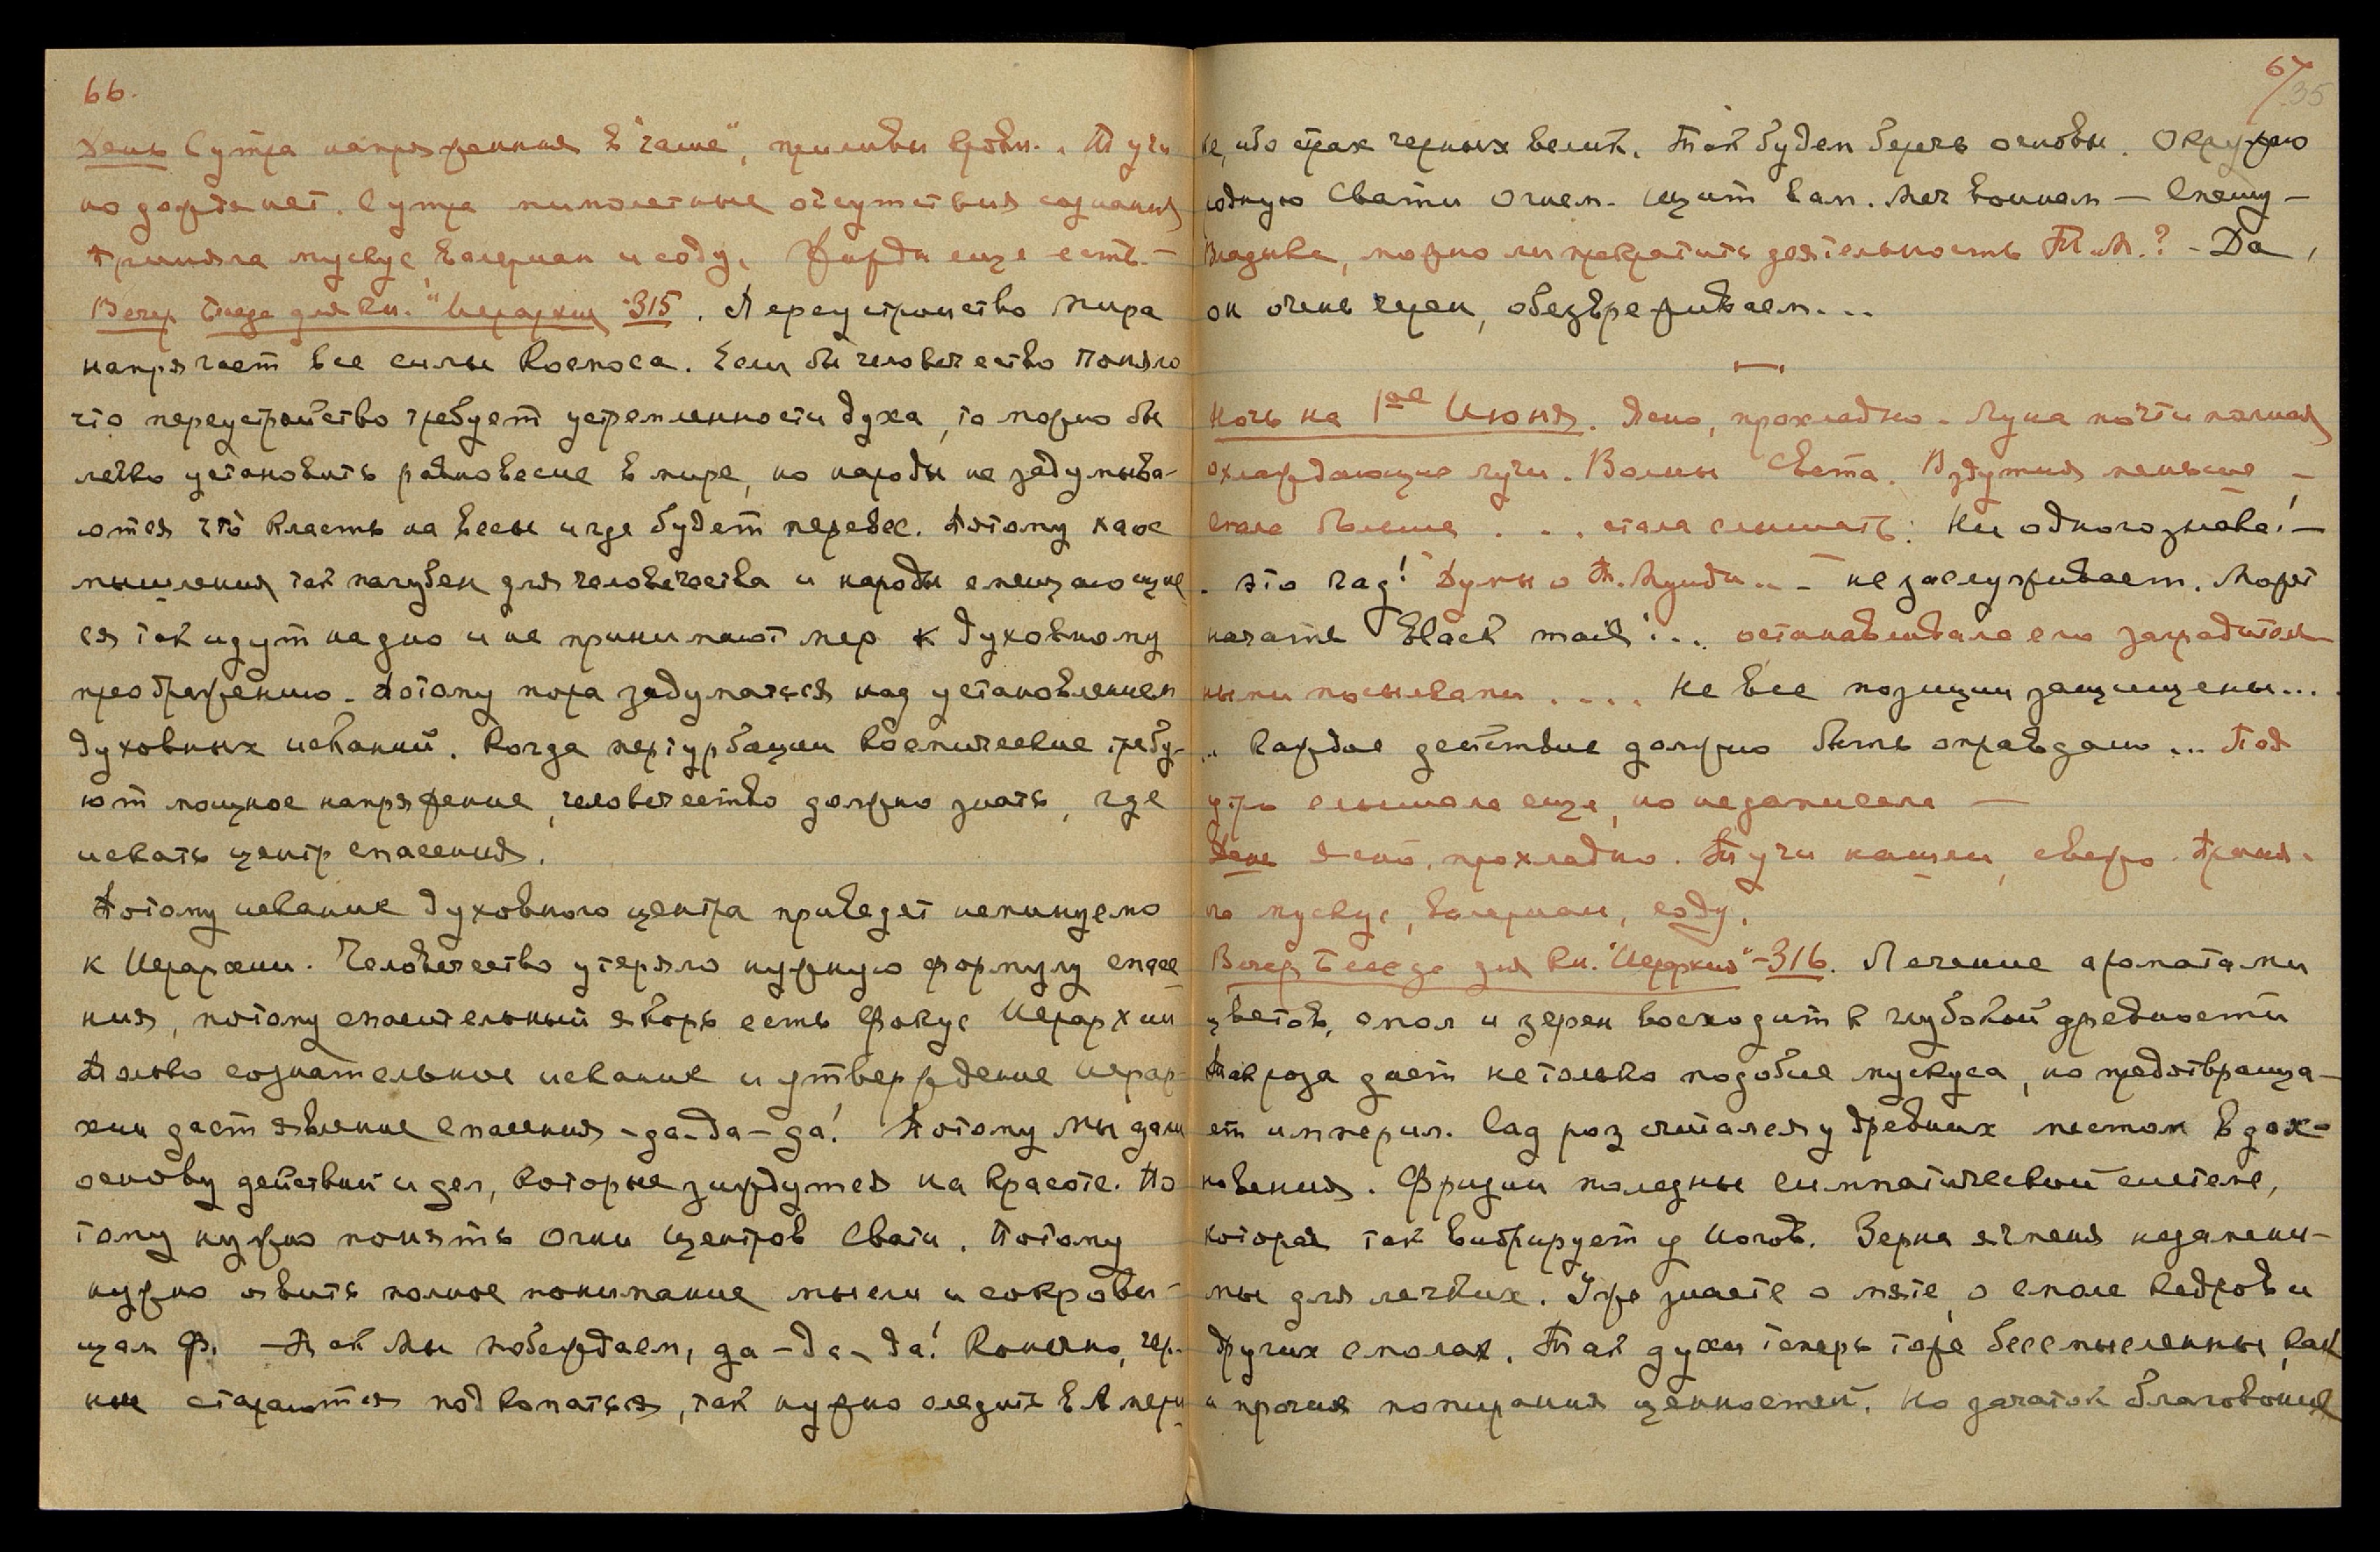 66.
День С утра напряжения в "чаше", приливы крови.. Тучи
но дождя нет. С утра мимолетные отсутствия сознания
Приняла мускус, валериан и соду. Фирди еще есть. —
Вечер Беседа для кн. "Иерархия -315. Переустройство Мира
напрягает все силы Космоса. Если бы человечество поняло
что переустройство требует устремленности духа, то можно бы
легко установить равновесие в мире, но народы не задумыва-
ются что класть на весы и где будет перевес. Потому хаос
мышления так пагубен для человечества и народы
ся так идут на дно и не принимают мер к духовному
преображению. Потому пора задуматься над установлением
духовных исканий. Когда пертурбации космические требу-
ют мощное напряжение, человечество должно знать, где
искать центр спасения.
Потому искание духовного центра приведет неминуемо
к Иерархии. Человечество утеряло нужную формулу спасе
ния, потому спасительный якорь есть Фокус Иерархии
Только сознательное искание и утверждение иерар-
хии даст явление спасения - да-да-да! Потому Мы дали
основу действий и дел, которые зиждутся на красоте. По
тому нужно понять огни центров Свати. Потому
нужно явить полное понимание мысли и сокрови-
щам Ф. — Так Мы побеждаем, да-да-да! Конечно, чер-
ные стараются подкопаться, так нужно следить в Амери
67/35
ке, ибо страх черных велик. Так будем беречь основы. Окружаю
родную Свати огнем. Щит вам. Меч воинам — Спешу —
Владыка, можно ли прекратить деятельность Т.М.? - Да,
он очень вреден, обезвреживаем...
Ночь на 1ое Июня. Ясно, прохладно. Луна почти полная
охлаждающие лучи. Волны Света. Вздутия меньше —
спала больше . . . стала слышать: Ни одного знака! —
. это гад! Думы о Т. Мунди.. — не заслуживает. Может
начать Black mail!... останавливала его заградитель
ными посылками .... Не все позиции защищены...
.. Каждое действие должно быть оправдано... Под
утро слышала еще, но не записала —
День Ясно, прохладно. Тучи нашли, свежо. Приня-
ла мускус, валериан, соду.
Вечер Беседа для кн. "Иерархия" -316. Лечение ароматами
цветов, смол и зерен восходит к глубокой древности
Так роза дает не только подобие мускуса, но предотвраща-
ет империл. Сад роз считался у древних местом вдох-
новения. Фризии полезны симпатической системе,
которая так вибрирует у Иогов. Зерна ячменя незамени-
мы для легких. Уже знаете о мяте, о смоле кедров и
других смолах. Так духи теперь тоже бессмысленны как
и прочие попирания ценностей. Но зачаток благовония